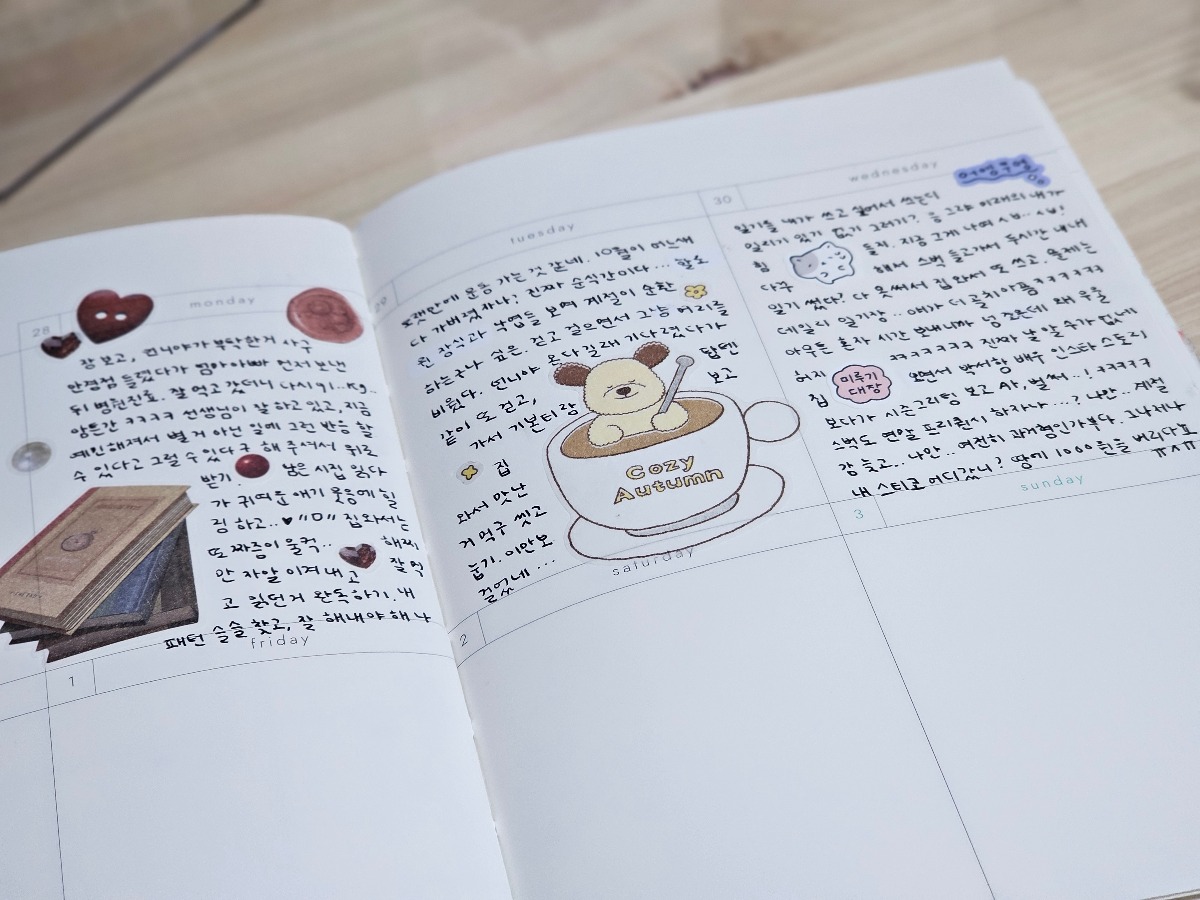 28
monday
장보고, 언니야가 부탁한거 사구
안경점 들렸다가 엄마아빠 먼저 보낸
뒤 병원진료. 잘 먹고 갔더니 다시 91..kg..
암튼간 ㅋㅋㅋㅋ 선생님이 잘 하고 있고, 지금
예민해져서 별 거 아닌 일에 그런 반응 할
수 있다고 그럴 수 있다구 해 주셔서 위로
받기 남은 시집 읽다
가 귀여운 애기 웃음에 힐
링 하고..♥ 집와서는
또 짜증이 울컥.. 해찌
만 자알 이겨내고 잘 먹
고 읽던거 완독하기. 내
패턴 슬슬 찾고, 잘 해내야 해 나
friday
1
29
tuesday
오랫만에 운동 가는 것 같네. 10월이 어느새
다 가버렸자나; 진짜 순식간이다... 할로
윈 장식과 낙엽들 보며 계절이 순환
하는구나 싶은. 걷고 걸으면서 그냥 머리를
비웠다. 언니야 온다길래 기다렸다가
같이 또 걷고, 텀텐
가서 기본티랑 보고
집
와서 맛난
거 먹구 씻고
눕기. 이만보
걸었네...
Cozy
Autumn
saturday
2
30
wednesday
일기를 내가 쓰고 싶어서 쓰는디
일리가 있기 없기 그러기? 응 그랴 이래의 내가
힘 들지. 지금 그게 나여 ㅅㅂ.. ㅅㅂ!
다꾸 해서 스벅 들고가서 두시간 내내
일기 썼다? 다 못써서 집와서 또 쓰고. 올제는
데일리 일기장.. 얘가 더 골치아픔ㅋㅋㅋㅋㅋ
아무튼 혼자 시간 보내니까 넘 좋은데 왜 우울
허지 ㅋㅋㅋㅋㅋㅋ 진짜 날 알 수가 없네
집 미루기 대장 오면서 박서함 배우 인스타 스토리
보다가 시즌그리팅 보고 아, 벌써..! ㅋㅋㅋㅋ
스벅도 연말 프리퀀시 하자나...? 나만.. 계절
감 늦고.. 나만.. 여전히 과거형인가부다. 그나저나
내 스티로 어디갔니? 땅에 1000원을 버리다모
ㅠㅅㅠ
sunday
3